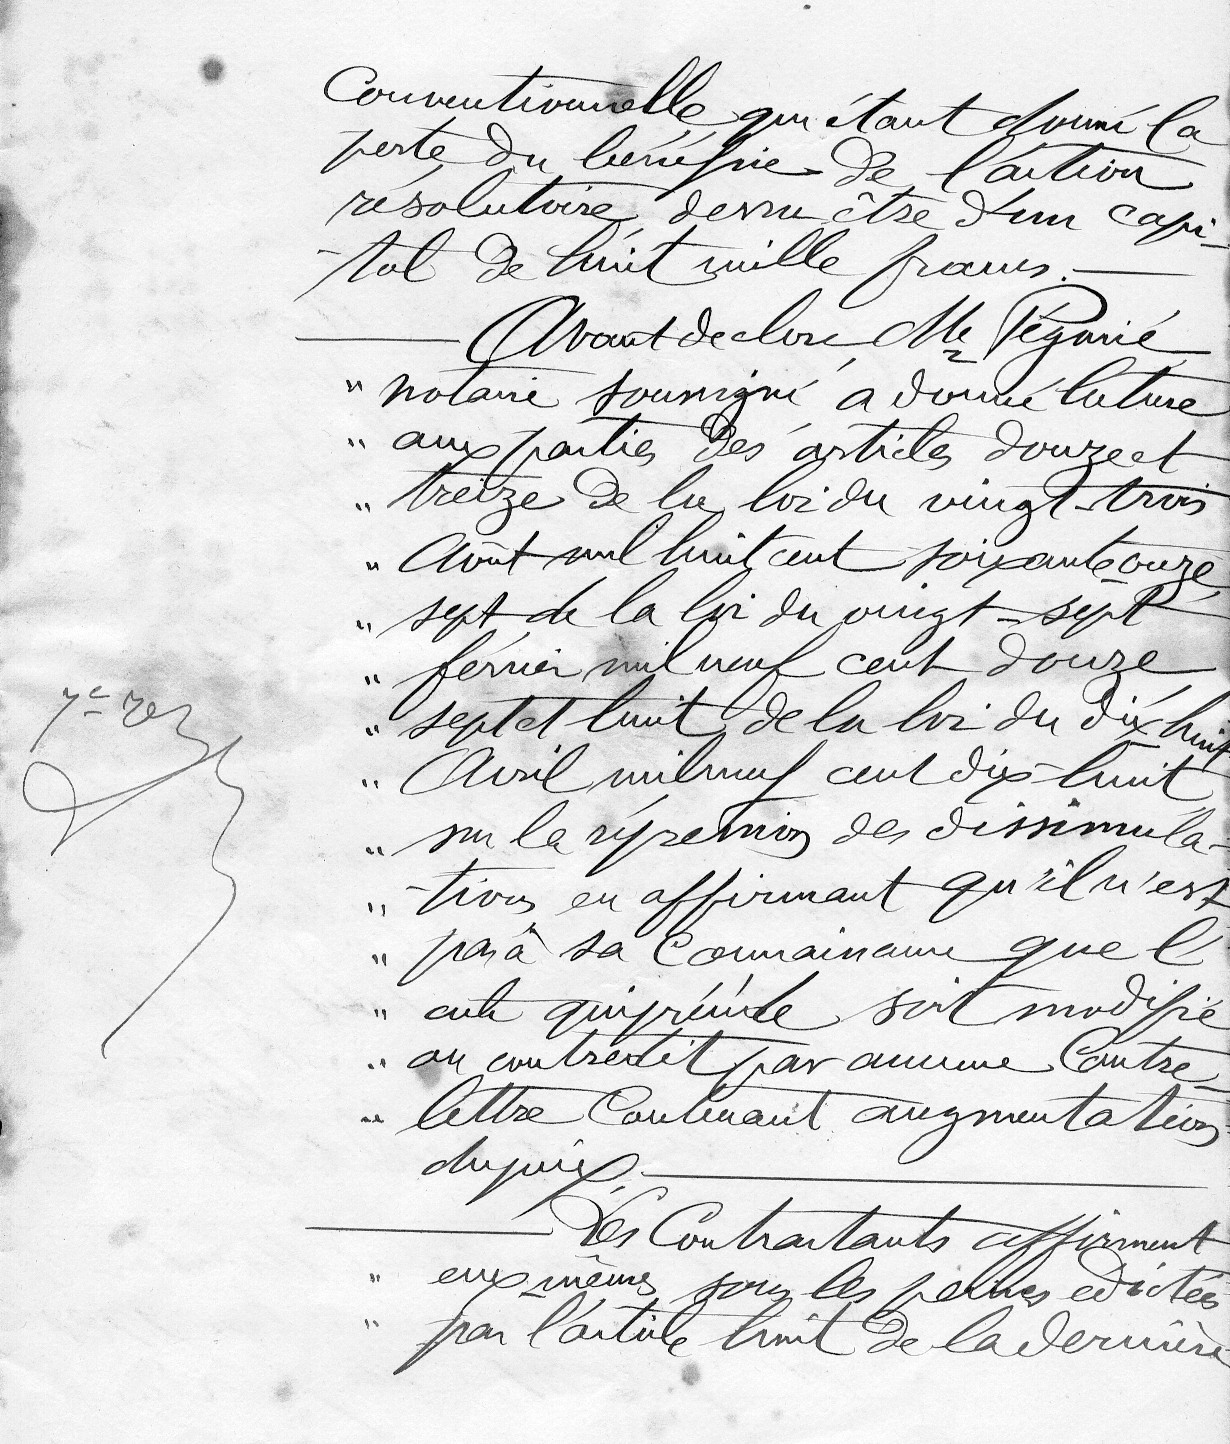 Conventionnelle qu'étant donné la
perte du bénéfice de l'action
résolutoire devra être d'un capi-
-tal de huit mille francs.
Avant de clore Me Pégurié
" notaire soussigné a donné lecture
" aux parties des articles douze et
" treize de la loi du vingt-trois
" Août mil huit cent soixante onze
" sept de la loi du vingt-sept
" février mil neuf cent douze
" sept et huit de la loi du dix huit
" Avril mil neuf cent dix-huit
" sur la répression des dissimula-
" -tions en affirmant qu'il n'est
" pas à sa connaissance que l'
" acte qui précède soit modifié
" ou contredit par aucune Contre-
" lettre Contenant augmentation
du prix.
Les Contractants affirment
" eux mêmes sous les peines edictées
" par l'article huit de la dernière